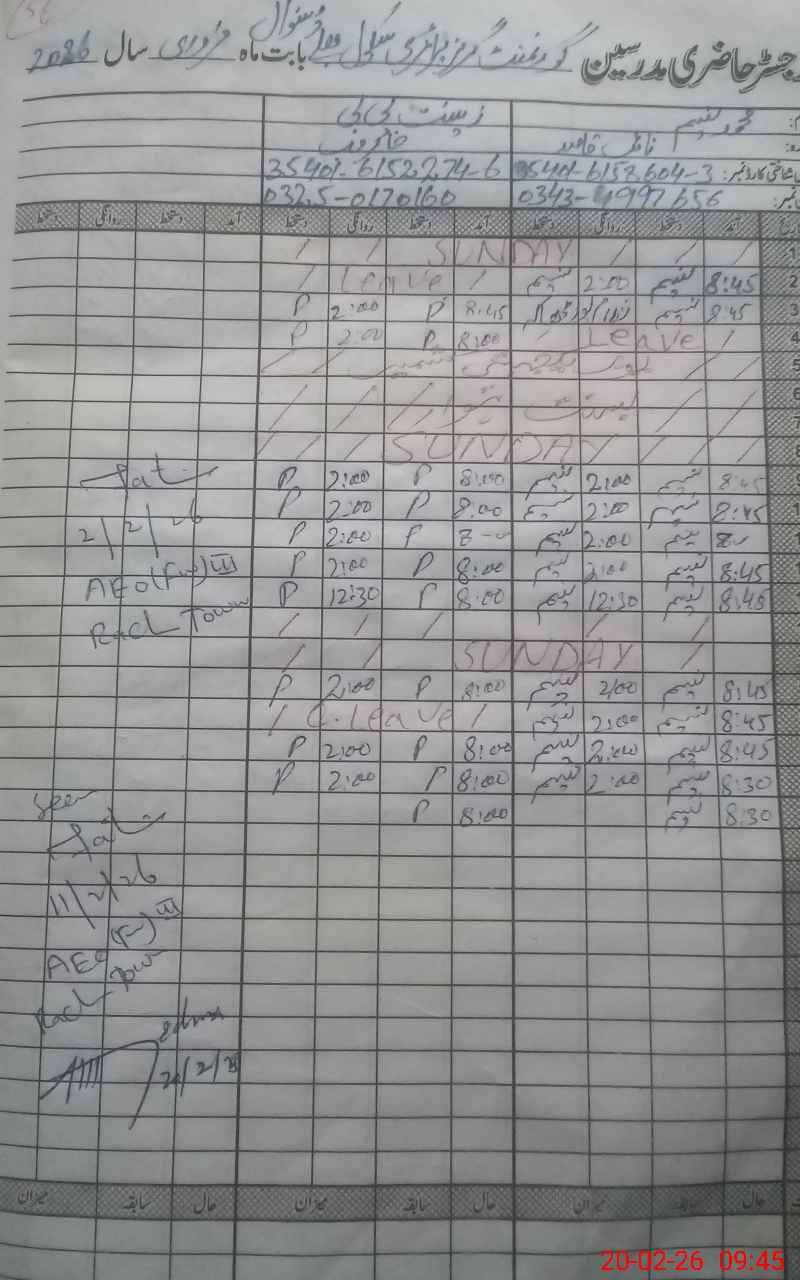 رجسٹر حاضری مدرسین گورنمنٹ گرلز پرائمری سکول بابت ماہ فروری سال 2026
محمد نسیم زینت بی بی
نائب قاصد
شناختی کارڈ نمبر: 35401-6158604-3 35401-6152274-6
نمبر: 0343-4997656 0325-0170160
آمد دستخط روانگی دستخط آمد دستخط روانگی دستخط آمد دستخط روانگی دستخط
1 SUNDAY
2 8:45 نسیم 2:00 نسیم Leave
3 8:45 نسیم 8:45 P 2:00 P
4 Leave 8:00 P 2:00 P
5 یوم یکجہتی کشمیر
6
7
8 SUNDAY
8:45 نسیم 2:00 نسیم 8:00 P 2:00 P
8:45 نسیم 2:00 نسیم 8:00 P 2:00 P
نسیم 2:00 نسیم P 2:00 P
8:45 نسیم 2:00 نسیم 8:00 P 2:00 P
8:45 نسیم 12:30 نسیم 8:00 P 12:30 P
SUNDAY
8:45 نسیم 2:00 نسیم 8:00 P 2:00 P
8:45 نسیم 2:00 نسیم C.Leave
8:45 نسیم 2:00 نسیم 8:00 P 2:00 P
8:30 نسیم 2:00 نسیم 8:00 P 2:00 P
8:30 نسیم 8:00 P
2/2/26
AEO (Fw) III
Town
Seen
11/2/26
AEO (Fw) III
Town
حال سابقہ میزان حال سابقہ میزان حال سابقہ میزان
20-02-26 09:45